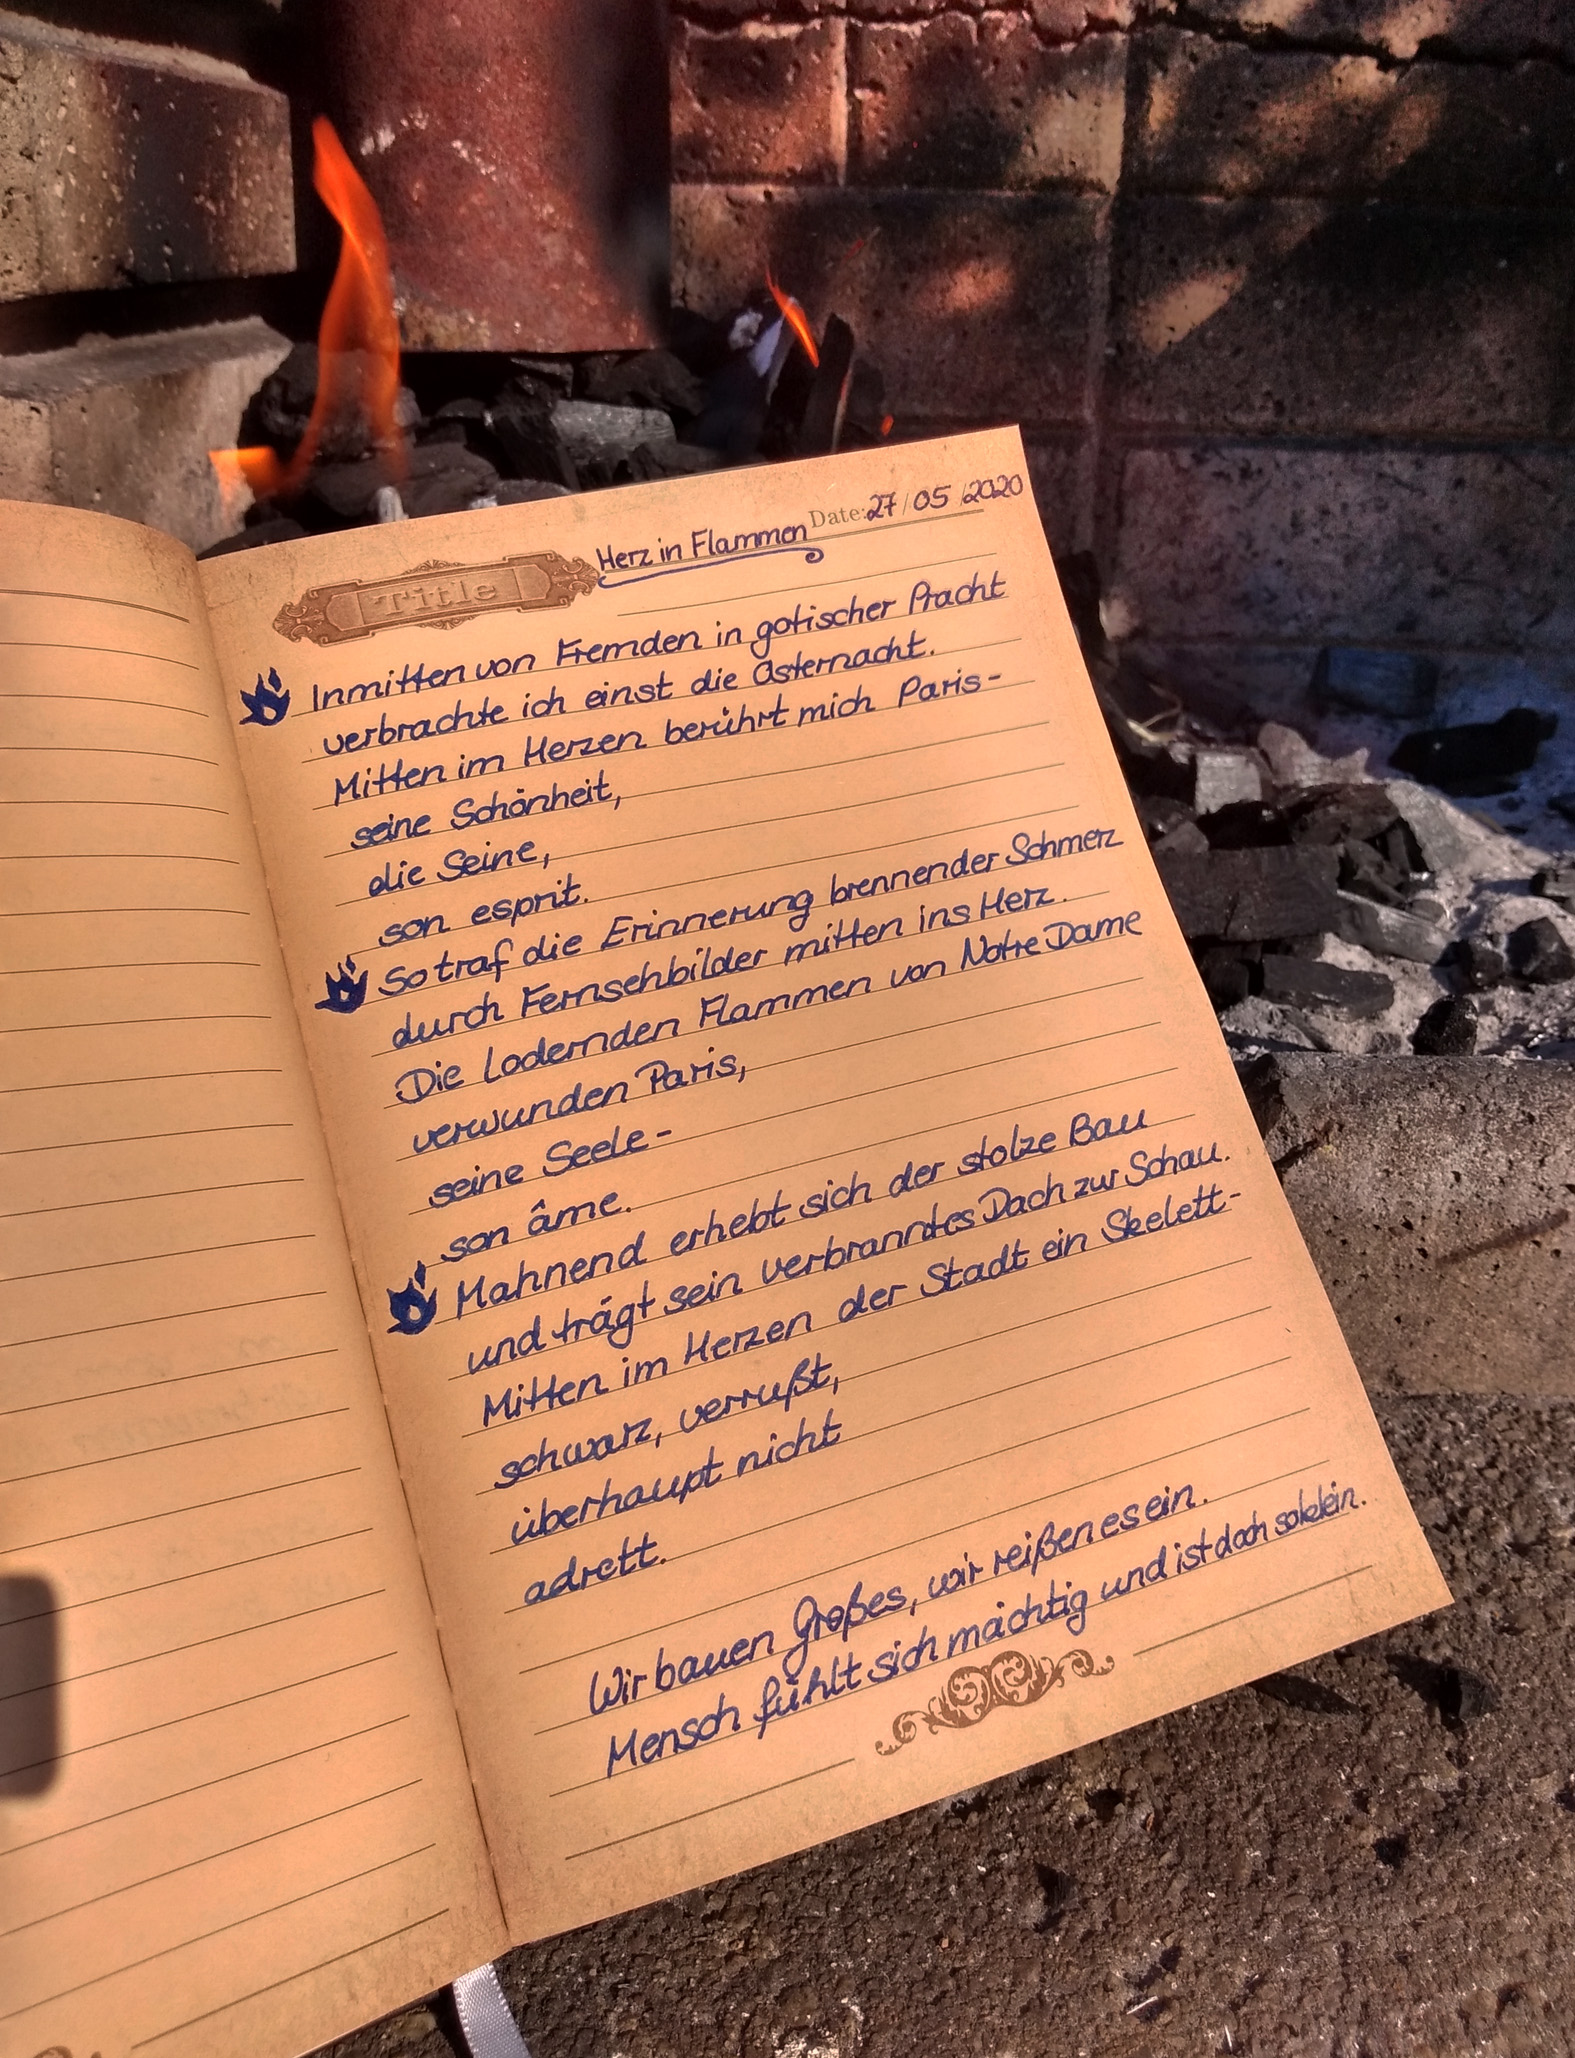 Date: 27/05/2020
Title Herz in Flammen
Inmitten von Fremden in gotischer Pracht
verbrachte ich einst die Osternacht.
Mitten im Herzen berührt mich Paris-
seine Schönheit,
die Seine,
son esprit.
So traf die Erinnerung brennender Schmerz
durch Fernsehbilder mitten ins Herz.
Die lodernden Flammen von Notre Dame
verwunden Paris,
seine Seele-
son âme.
Mahnend erhebt sich der stolze Bau
und trägt sein verbranntes Dach zur Schau.
Mitten im Herzen der Stadt ein Skelett-
schwarz, verrußt,
überhaupt nicht
adrett.
Wir bauen Großes, wir reißen es ein.
Mensch fühlt sich mächtig und ist doch so klein.